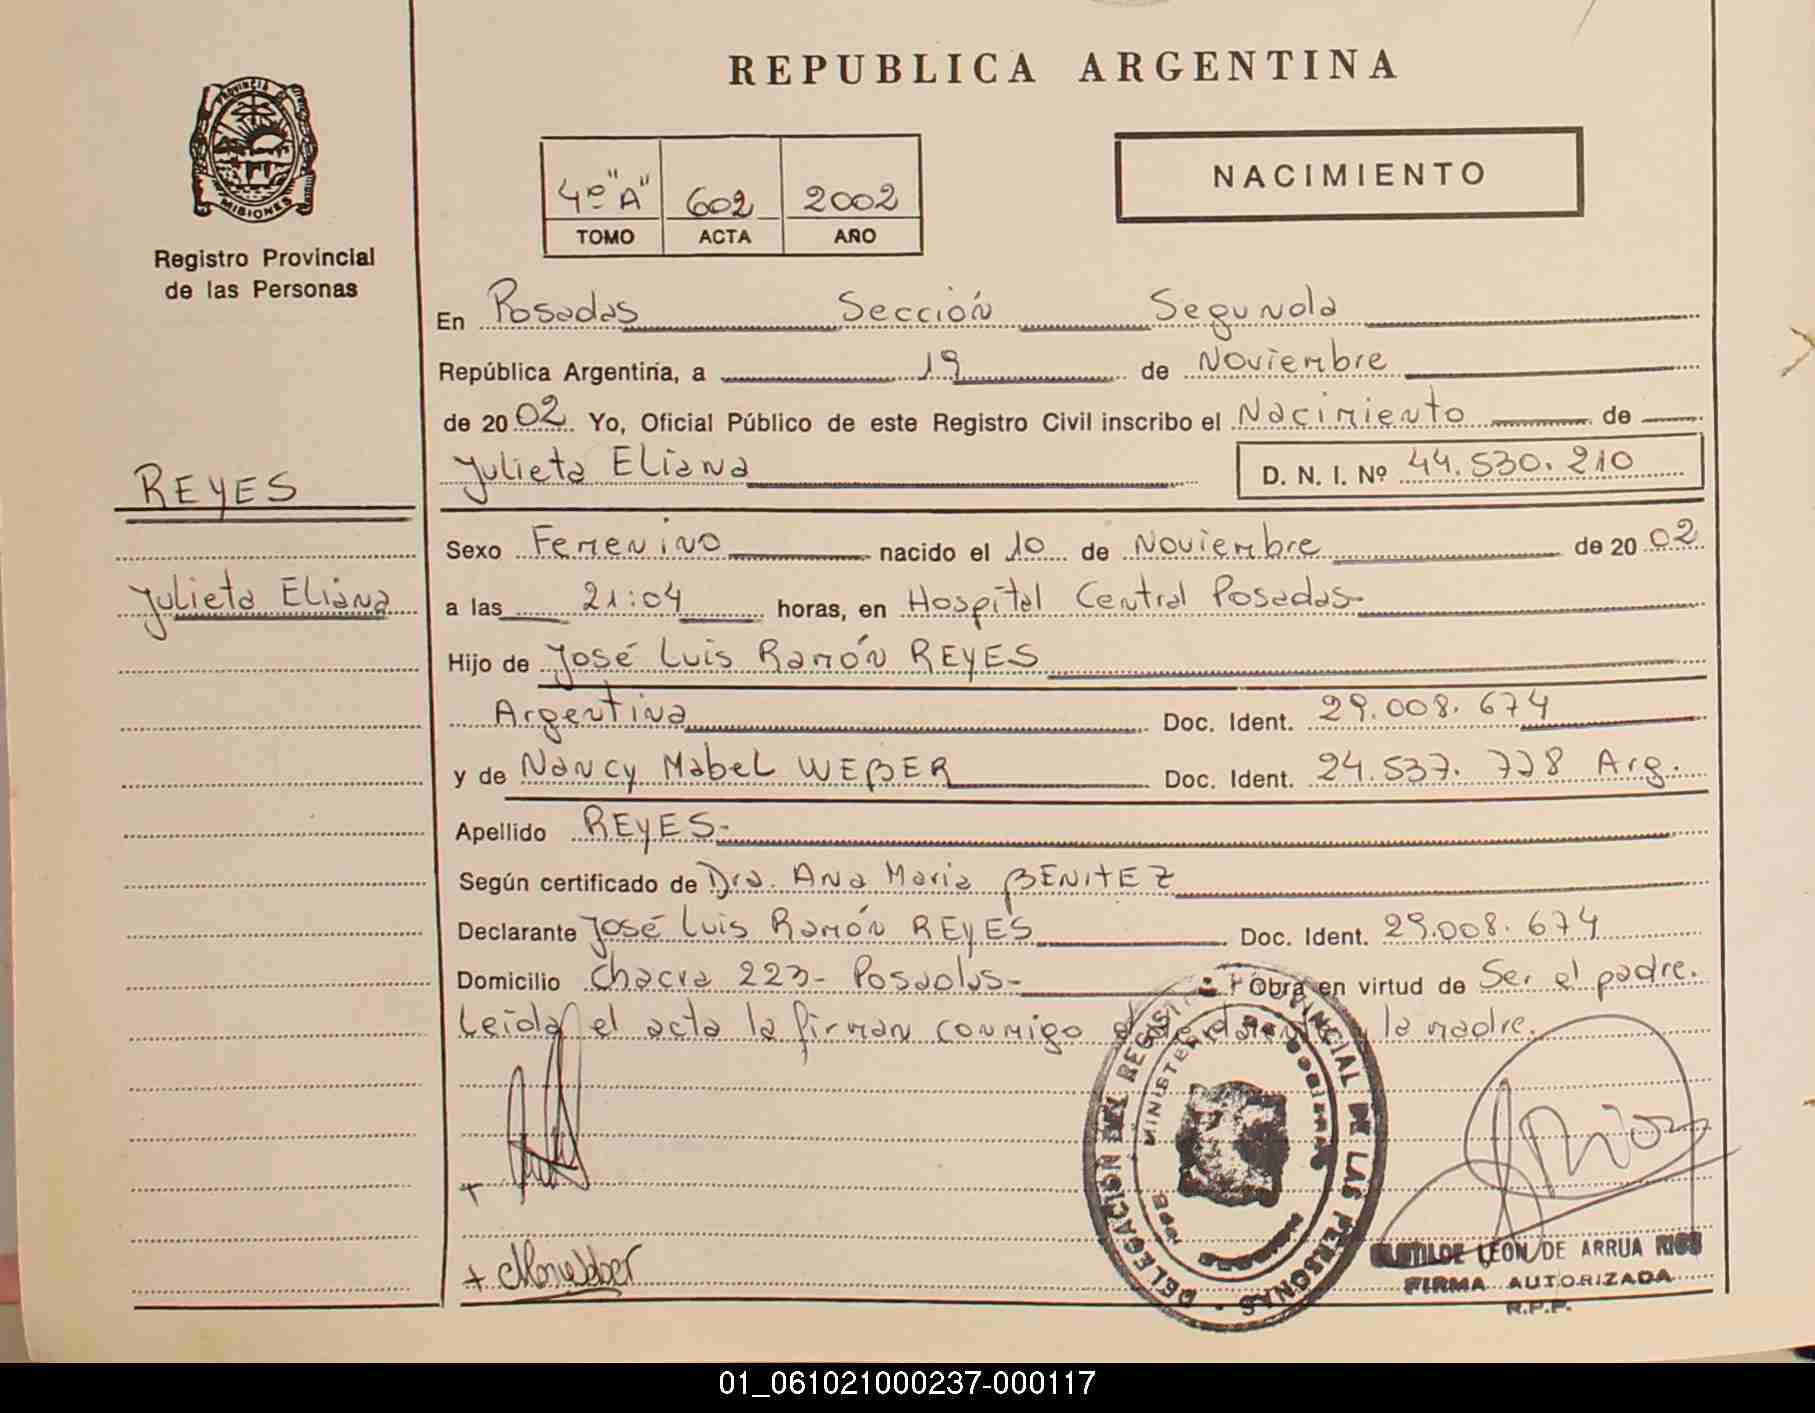 REPUBLICA ARGENTINA
PROVINCIA DE
MISIONES
Registro Provincial
de las Personas
4º "A" 602 2002
TOMO ACTA AÑO
NACIMIENTO
En Posadas Sección Segunda
República Argentina, a 19 de Noviembre
de 2002 Yo, Oficial Público de este Registro Civil inscribo el Nacimiento de
REYES
Julieta Eliana D. N. I. Nº 44.530.210
Sexo Femenino nacido el 10 de Noviembre de 2002
Julieta Eliana
a las 21:04 horas, en Hospital Central Posadas-
Hijo de José Luis Ramón REYES
Argentina Doc. Ident. 29.008.674
y de Nancy Mabel WEBER Doc. Ident. 24.537.728 Arg.
Apellido REYES-
Según certificado de Dra. Ana Maria BENITEZ
Declarante José Luis Ramón REYES Doc. Ident. 29.008.674
Domicilio Chacra 223- Posadas- Obra en virtud de Ser el padre.
Leida el acta la firman conmigo el declarante y la madre.
DELEGACION DEL REGISTRO PROVINCIAL DE LAS PERSONAS
MINISTERIO DE GOBIERNO
MISIONES
CLOTILDE LEON DE ARRUA RIOS
FIRMA AUTORIZADA
R.P.P.
01_061021000237-000117